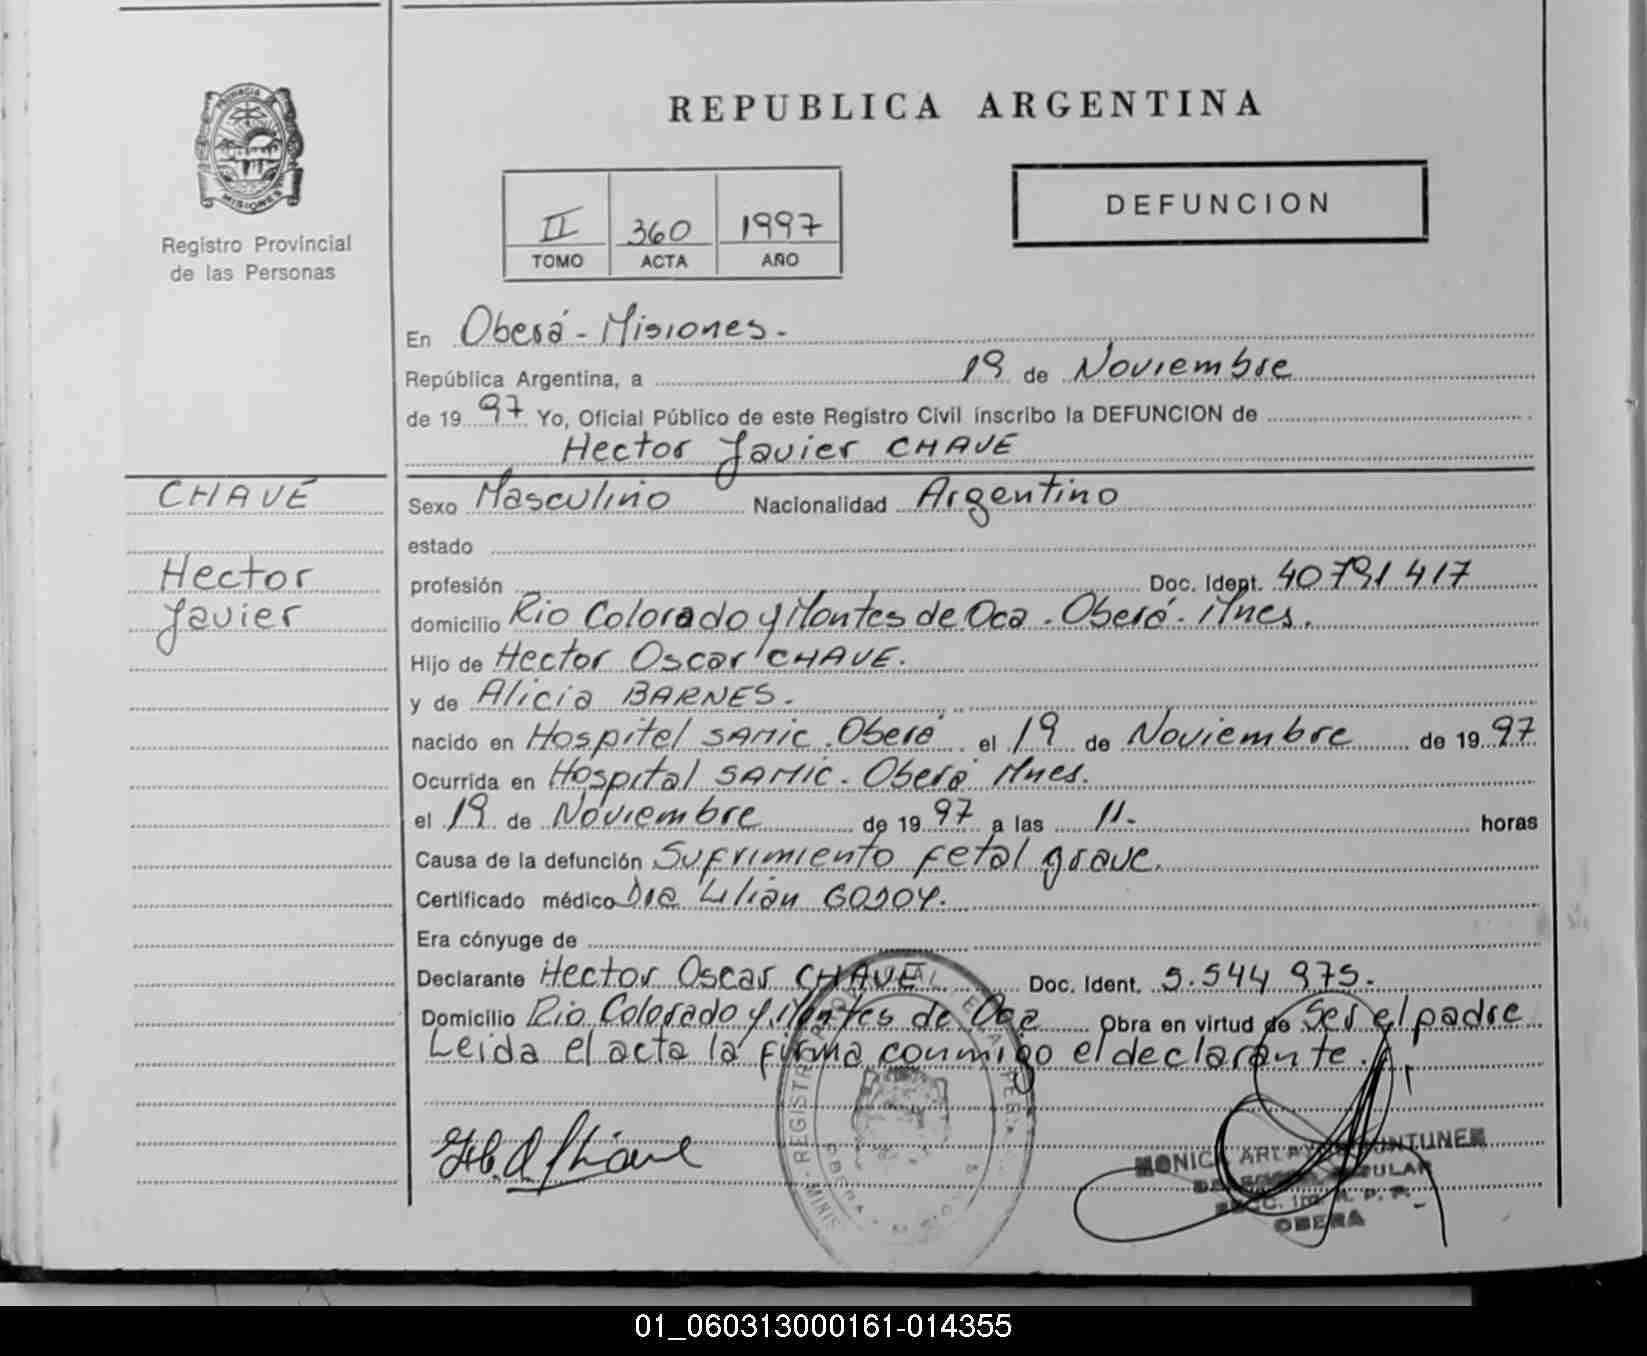 PROVINCIA DE
MISIONES
Registro Provincial
de las Personas
REPUBLICA ARGENTINA
II 360 1997
TOMO ACTA AÑO
DEFUNCION
En Oberá - Misiones.-
República Argentina, a 19 de Noviembre
de 19 97 Yo, Oficial Público de este Registro Civil inscribo la DEFUNCION de
Hector Javier CHAVE
CHAVE
Hector
Javier
Sexo Masculino Nacionalidad Argentino
estado
profesión Doc. Ident. 40791417
domicilio Rio Colorado y Montes de Oca. Oberá. Mnes.
Hijo de Hector Oscar CHAVE.
y de Alicia BARNES.
nacido en Hospital SAMIC. Oberá el 19 de Noviembre de 19 97
Ocurrida en Hospital SAMIC. Oberá Mnes.
el 19 de Noviembre de 19 97 a las 11.- horas
Causa de la defunción Sufrimiento fetal grave.
Certificado médico Dra Lilian GODOY.
Era cónyuge de
Declarante Hector Oscar CHAVE Doc. Ident. 5.544 975.
Domicilio Rio Colorado y Montes de Oca Obra en virtud de Ser el padre
Leida el acta la firma conmigo el declarante.
REGISTRO PROVINCIAL
OBERA
OBERA
01_060313000161-014355